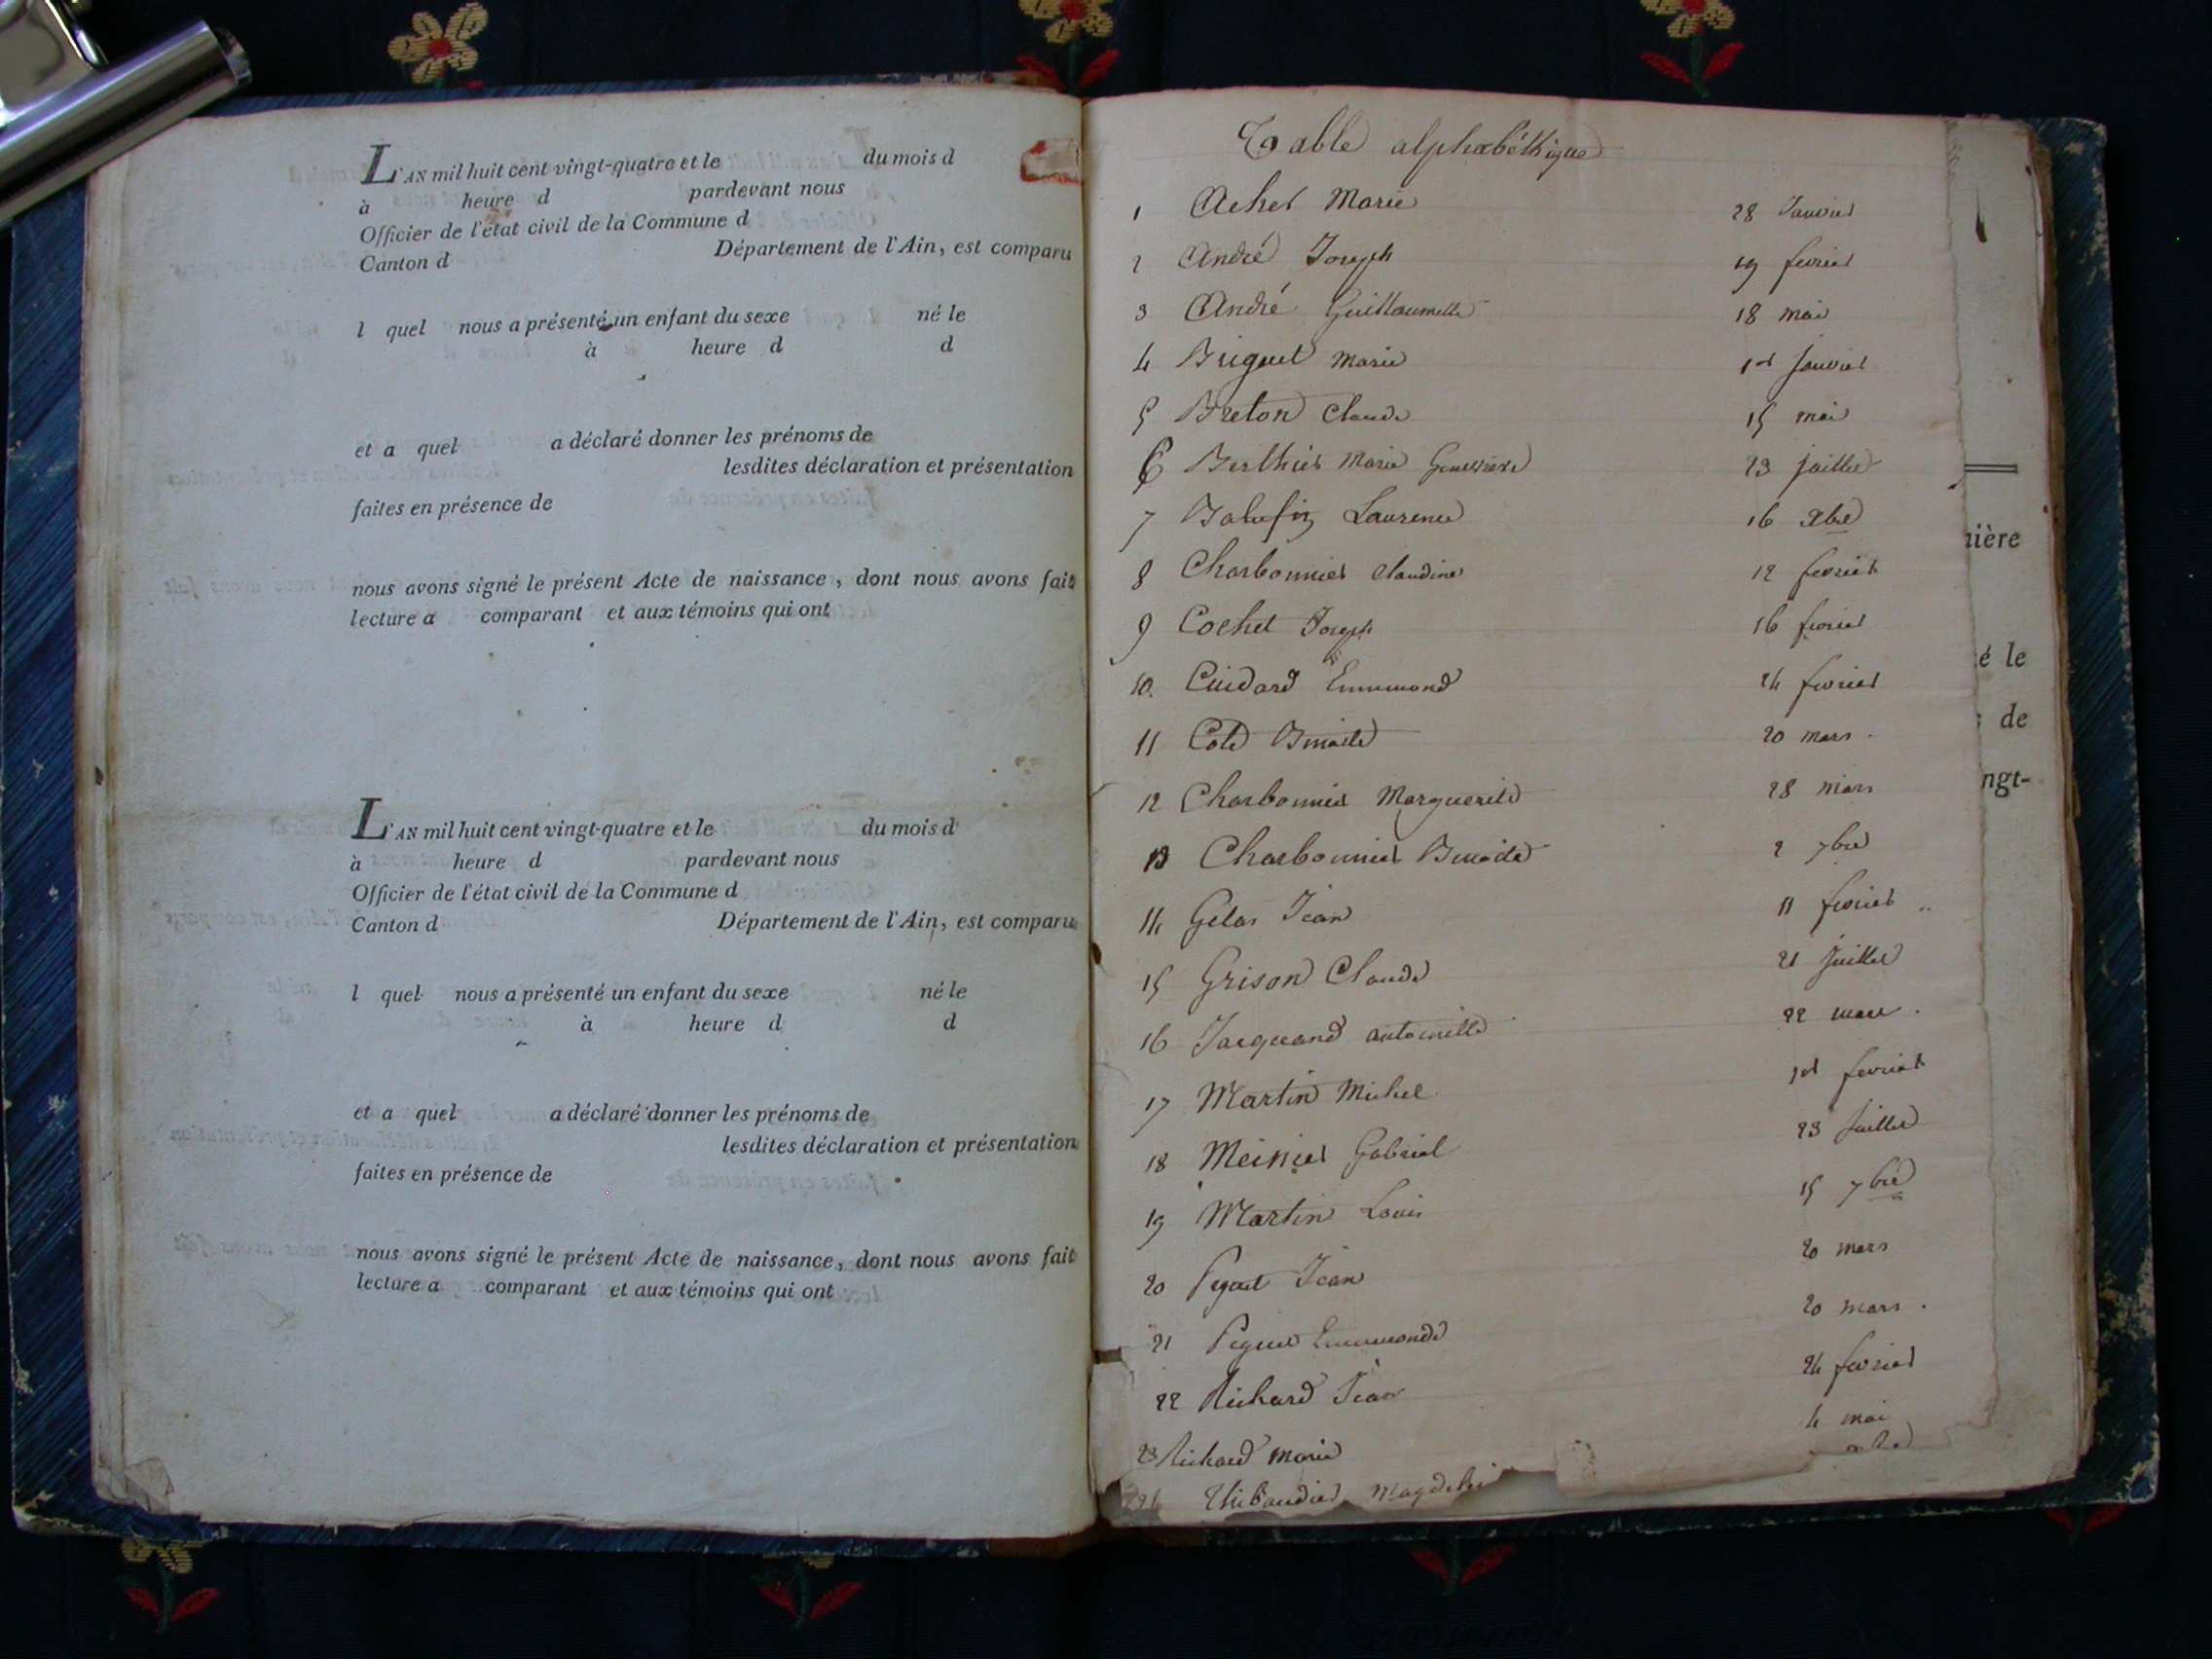 L'AN mil huit cent vingt-quatre et le du mois d
à heure d pardevant nous
Officier de l'état civil de la Commune d
Canton d Département de l'Ain, est comparu
l quel nous a présenté un enfant du sexe né le
à heure d d
et a quel a déclaré donner les prénoms de
lesdites déclaration et présentation
faites en présence de
nous avons signé le présent Acte de naissance, dont nous avons fait
lecture a comparant et aux témoins qui ont
L'AN mil huit cent vingt-quatre et le du mois d
à heure d pardevant nous
Officier de l'état civil de la Commune d
Canton d Département de l'Ain, est comparu
l quel nous a présenté un enfant du sexe né le
à heure d d
et a quel a déclaré donner les prénoms de
lesdites déclaration et présentation
faites en présence de
nous avons signé le présent Acte de naissance, dont nous avons fait
lecture a comparant et aux témoins qui ont
Table alphabéthique
1 Achet Marie 28 Janvier
2 André Joseph 19 fevrier
3 André Guillaumette 18 mai
4 Briguet Marie 1er Janvier
5 Breton Claude 15 mai
6 Berthier Marie Genevieve 23 juillet
7 Laurence 16 Xbre
8 Charbonnier Claudine 12 fevrier
9 Cochet Joseph 16 fevrier
10. Cuidard Ennemond 24 fevrier
11 Cote Benoite 20 mars
12 Charbonnier Marguerite 28 mars
13 Charbonnier Benoite 2 7bre
14 Gelas Jean 11 fevrier
15 Grison Claude 21 Juillet
16 Jacquand antoinette 22 mars
17 Martin Michel 1er fevrier
18 Meinier Gabriel 23 Juillet
19 Martin Louis 15 7bre
20 Peguet Jean 20 mars
21 Peguet Ennemonde 20 mars
22 Richard Jean 24 fevrier
23 Richard Marie 4 mai
24 Thibaudier
ière
é le
de
ngt-